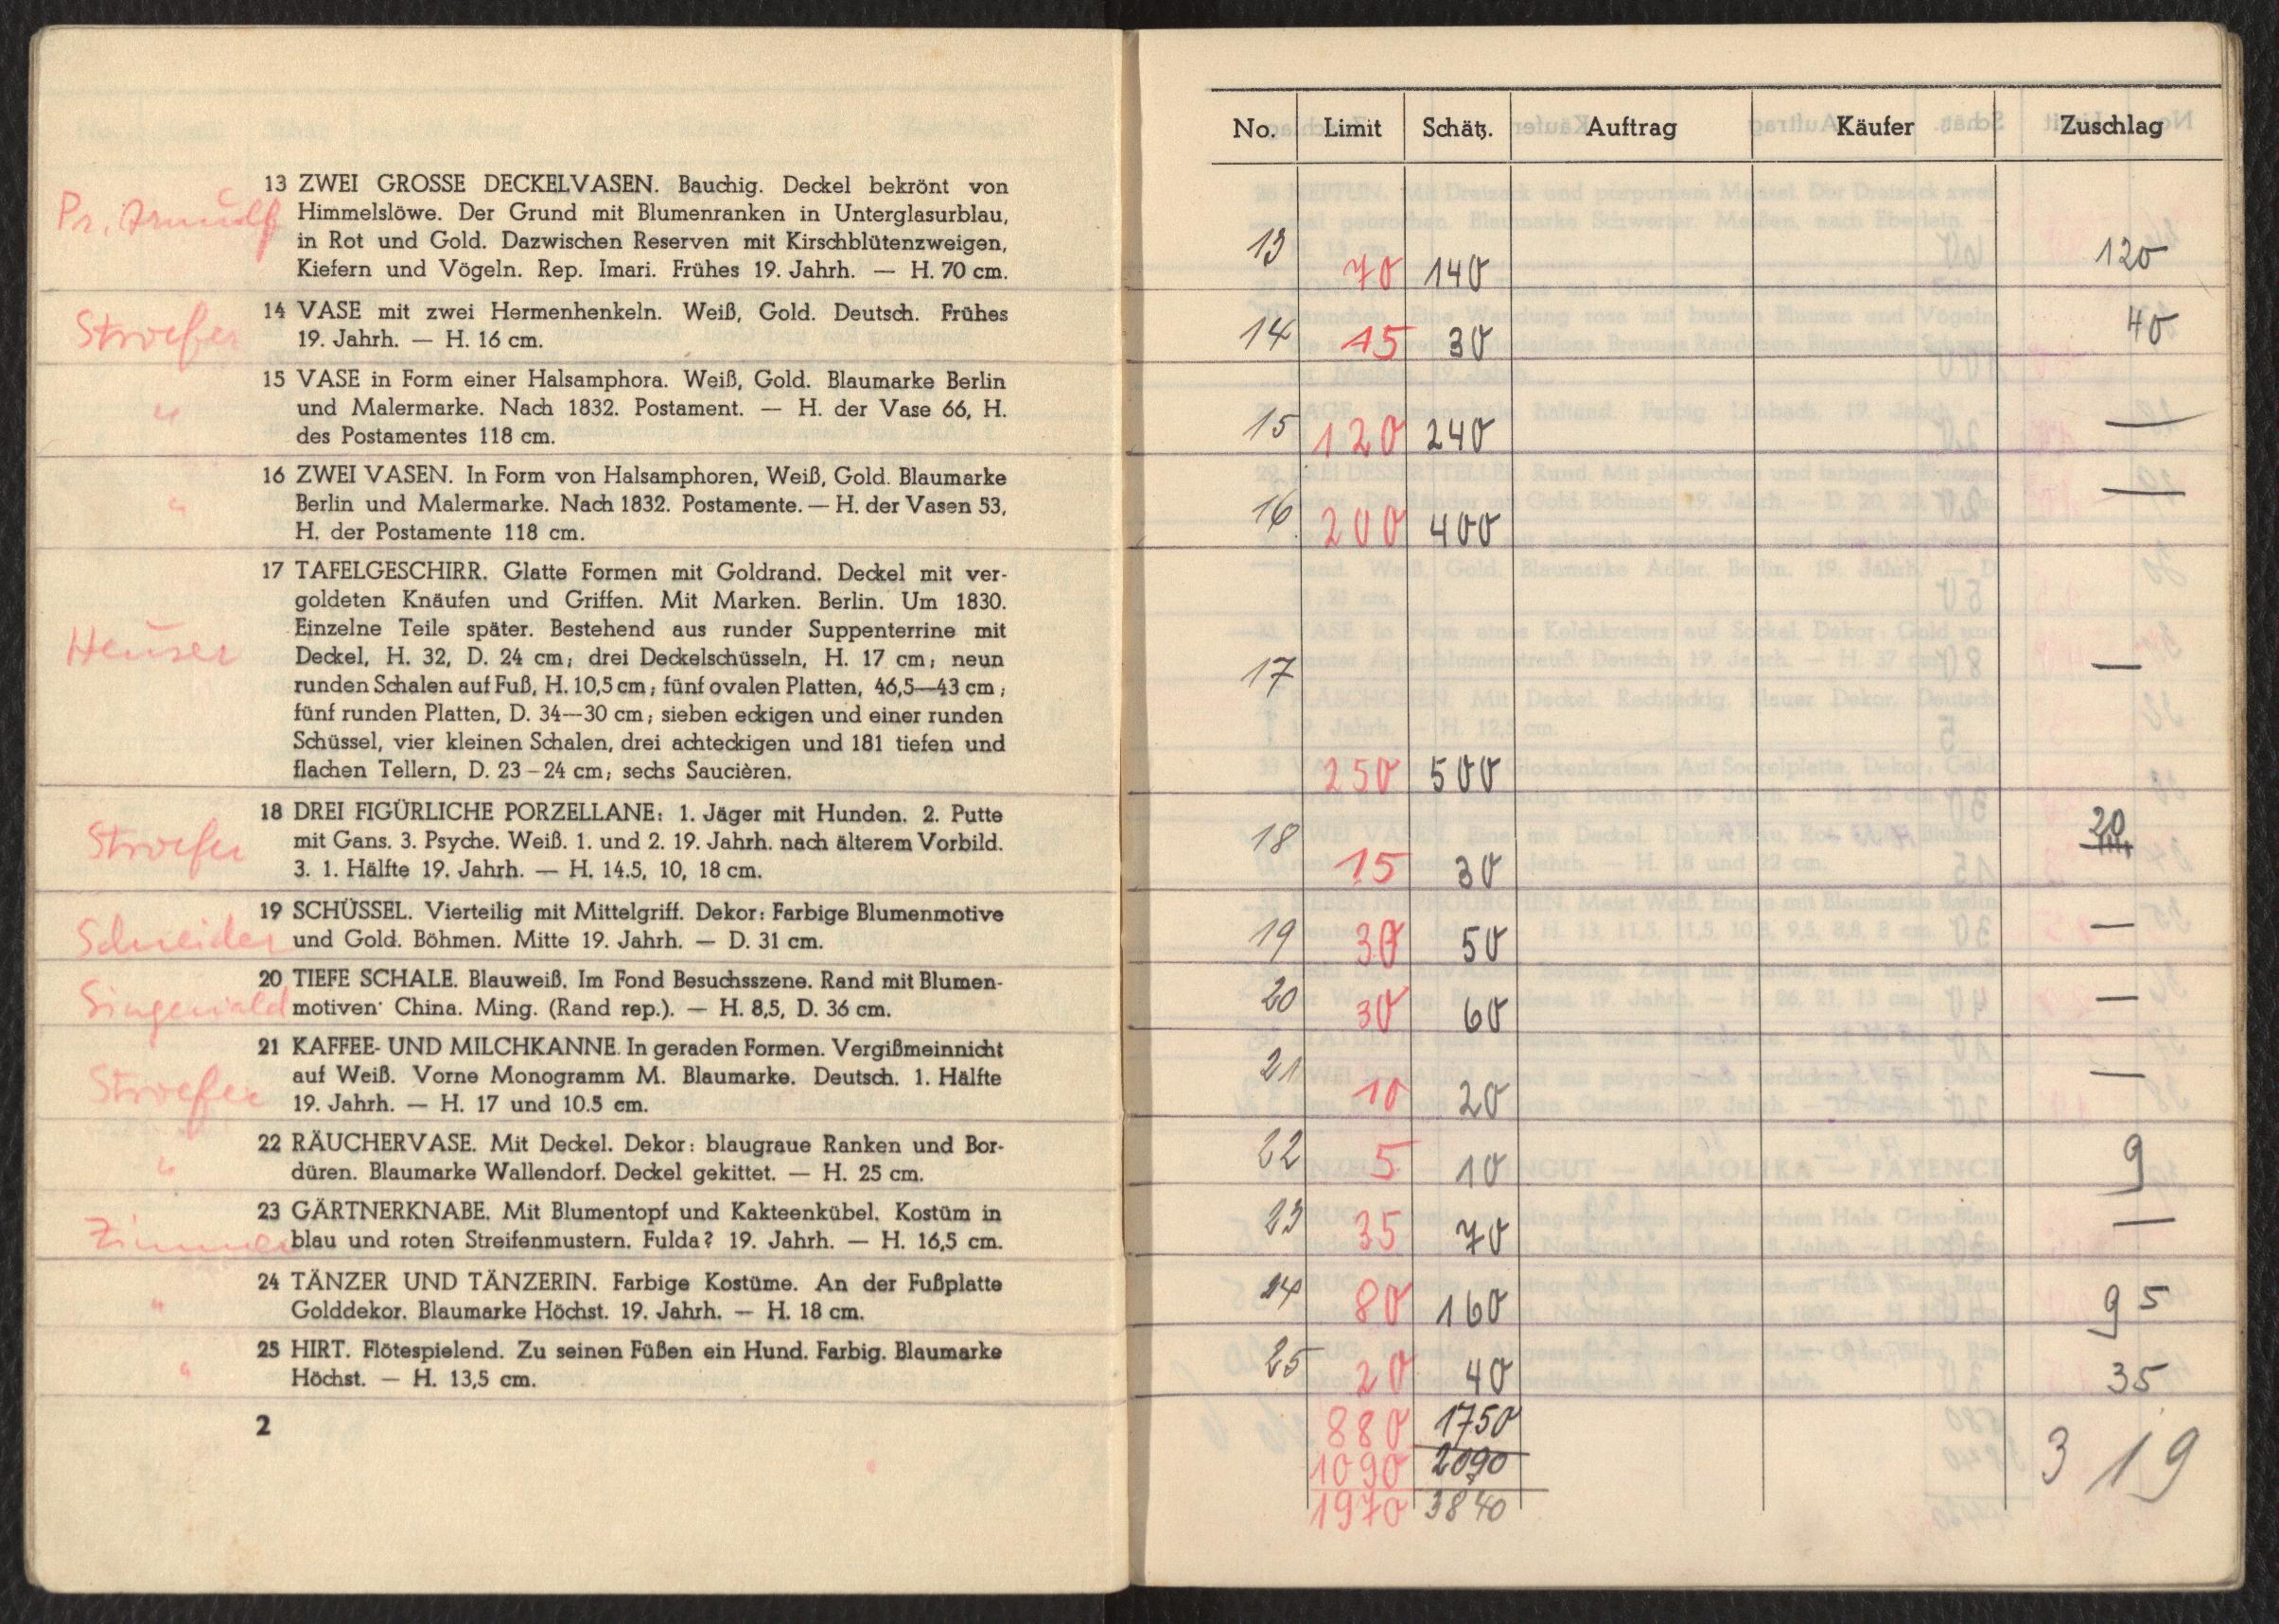 13 ZWEI GROSSE DECKELVASEN. Bauchig. Deckel bekrönt von
Pr. Arnulf Himmelslöwe. Der Grund mit Blumenranken in Unterglasurblau,
in Rot und Gold. Dazwischen Reserven mit Kirschblütenzweigen,
Kiefern und Vögeln. Rep. Imari. Frühes 19. Jahrh. — H. 70 cm.
14 VASE mit zwei Hermenhenkeln. Weiß, Gold. Deutsch. Frühes
Stroefer 19. Jahrh. — H. 16 cm.
15 VASE in Form einer Halsamphora. Weiß, Gold. Blaumarke Berlin
" und Malermarke. Nach 1832. Postament. — H. der Vase 66, H.
des Postamentes 118 cm.
16 ZWEI VASEN. In Form von Halsamphoren, Weiß, Gold. Blaumarke
" Berlin und Malermarke. Nach 1832. Postamente. — H. der Vasen 53,
H. der Postamente 118 cm.
17 TAFELGESCHIRR. Glatte Formen mit Goldrand. Deckel mit ver-
goldeten Knäufen und Griffen. Mit Marken. Berlin. Um 1830.
Einzelne Teile später. Bestehend aus runder Suppenterrine mit
Heuser Deckel, H. 32, D. 24 cm; drei Deckelschüsseln, H. 17 cm; neun
runden Schalen auf Fuß, H. 10,5 cm; fünf ovalen Platten, 46,5—43 cm;
fünf runden Platten, D. 34—30 cm; sieben eckigen und einer runden
Schüssel, vier kleinen Schalen, drei achteckigen und 181 tiefen und
flachen Tellern, D. 23–24 cm; sechs Saucièren.
18 DREI FIGÜRLICHE PORZELLANE: 1. Jäger mit Hunden. 2. Putte
Stroefer mit Gans. 3. Psyche. Weiß. 1. und 2. 19. Jahrh. nach älterem Vorbild.
3. 1. Hälfte 19. Jahrh. — H. 14.5, 10, 18 cm.
19 SCHÜSSEL. Vierteilig mit Mittelgriff. Dekor: Farbige Blumenmotive
Schneider und Gold. Böhmen. Mitte 19. Jahrh. — D. 31 cm.
20 TIEFE SCHALE. Blauweiß. Im Fond Besuchsszene. Rand mit Blumen-
Singewald motiven· China. Ming. (Rand rep.). — H. 8,5, D. 36 cm.
21 KAFFEE- UND MILCHKANNE. In geraden Formen. Vergißmeinnicht
Stroefer auf Weiß. Vorne Monogramm M. Blaumarke. Deutsch. 1. Hälfte
19. Jahrh. — H. 17 und 10.5 cm.
22 RÄUCHERVASE. Mit Deckel. Dekor: blaugraue Ranken und Bor-
" düren. Blaumarke Wallendorf. Deckel gekittet. — H. 25 cm.
23 GÄRTNERKNABE. Mit Blumentopf und Kakteenkübel. Kostüm in
Zimmer blau und roten Streifenmustern. Fulda? 19. Jahrh. — H. 16,5 cm.
24 TÄNZER UND TÄNZERIN. Farbige Kostüme. An der Fußplatte
" Golddekor. Blaumarke Höchst. 19. Jahrh. — H. 18 cm.
25 HIRT. Flötespielend. Zu seinen Füßen ein Hund. Farbig. Blaumarke
" Höchst. — H. 13,5 cm.
2
No. Limit Schätz. Auftrag Käufer Zuschlag
13 70 140 120
14 15 30 40
15 120 240 —
16 200 400 —
17 250 500 —
18 15 30 20
19 30 50 —
20 30 60 —
21 10 20 —
22 5 10 9
23 35 70 —
24 80 160 95
25 20 40 35
880 1750 319
1090 2090
1970 3840